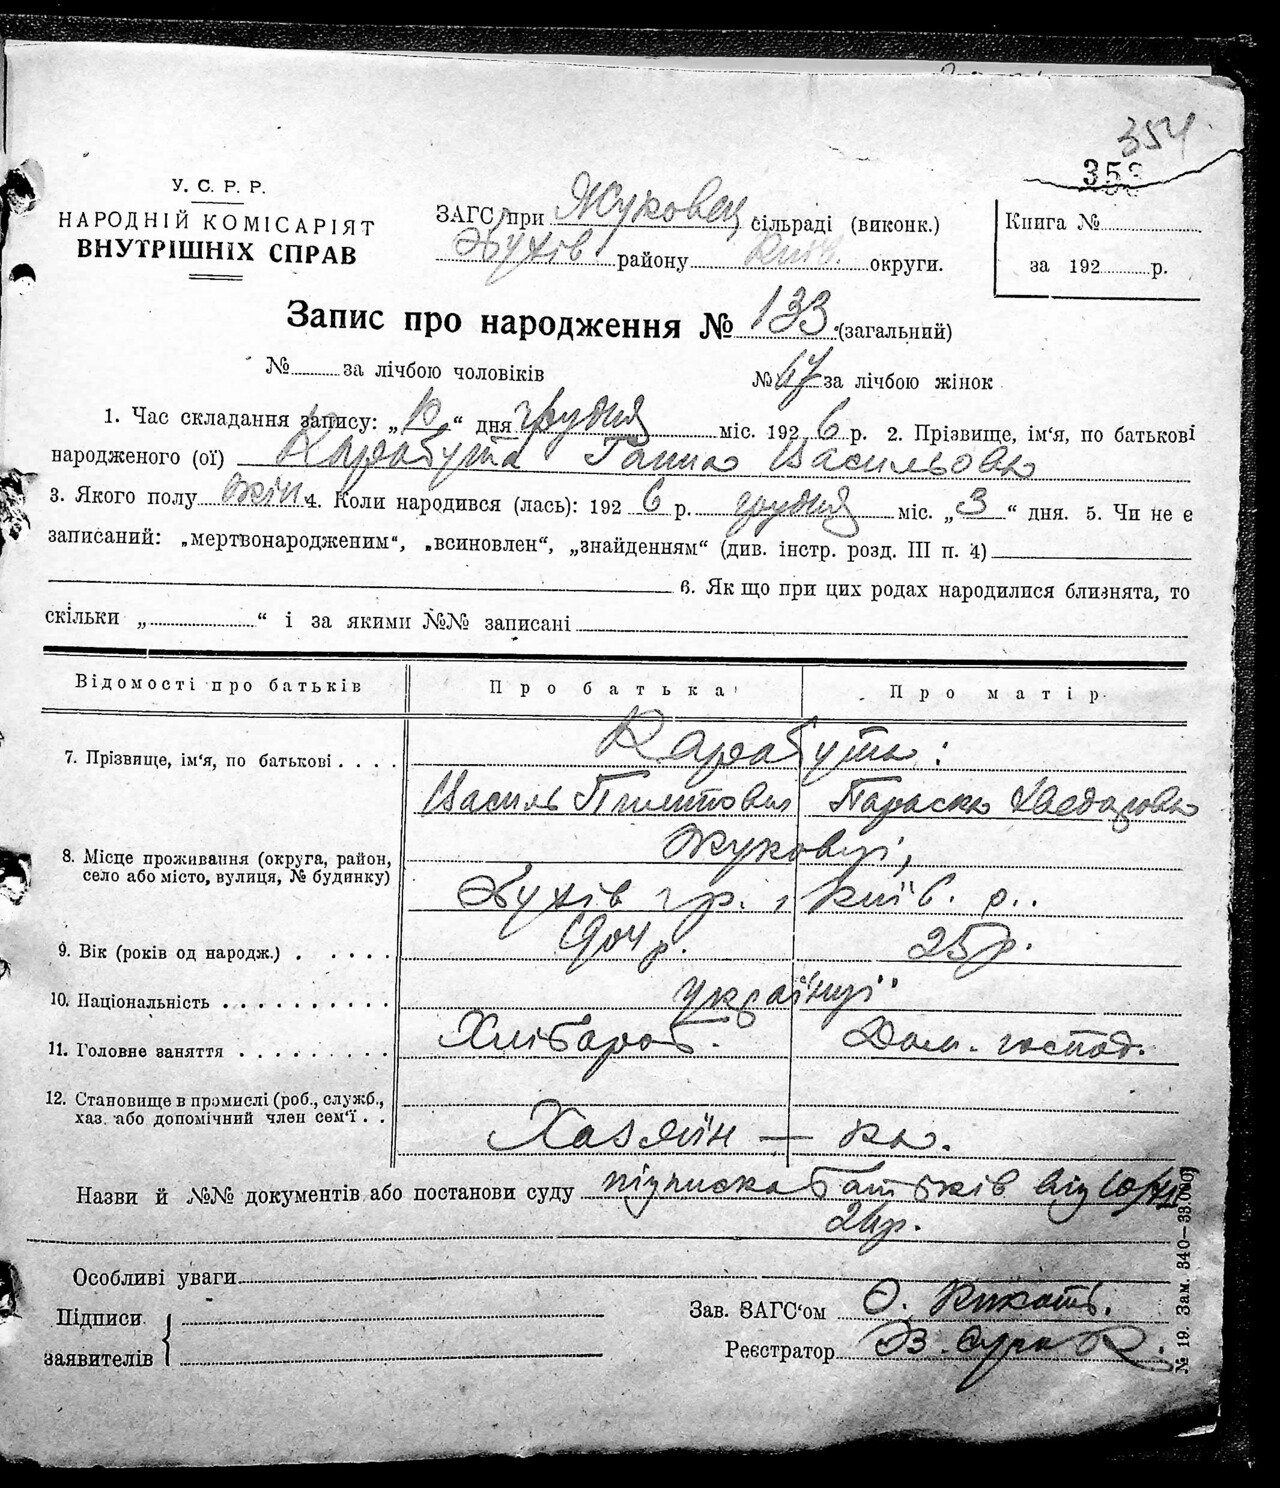 354
353
У. С. Р. Р.
НАРОДНІЙ КОМІСАРІЯТ
ВНУТРІШНІХ СПРАВ
ЗАГС при Жуковец. сільраді (виконк.)
Обухів району Київ. округи.
Книга №
за 192 р.
Запис про народження № 133 (загальний)
№ за лічбою чоловіків
№ 67 за лічбою жінок
1. Час складання запису: „10“ дня грудня міс. 192 6 р. 2. Прізвище, ім‘я, по батькові
народженого (ої) Карабута Ганна Васильовна
3. Якого полу жін 4. Коли народився (лась): 192 6 р. грудня міс. „3“ дня. 5. Чи не є
записаний: „мертвонародженим“, „всиновлен“, „знайденням“ (див. інстр. розд. III п. 4)
6. Як що при цих родах народилися близнята, то
скільки „ “ і за якими №№ записані
Відомості про батьків Про батька Про матір
7. Прізвище, ім‘я, по батькові . . . . Карабута :
Василь Пилипович Параска
8. Місце проживання (округа, район, село або місто, вулиця, № будинку) Жуковці,
Обухів р., Київ. о.
9. Вік (років од народж.) . . . . . . 1904 р. 25 р.
10. Національність . . . . . . . . . . українці
11. Головне заняття . . . . . . . . . Хлібороб. Дом. господ.
12. Становище в промислі (роб., служб., хаз. або допомічний член сем‘ї . . Хазяїн — ка.
Назви й №№ документів або постанови суду підписка батьків від 10/XII
26 р.
Особливі уваги
Підписи
заявителів
Зав. ЗАГС‘ом О.
Реєстратор
№ 19. Зам. 340—33.000